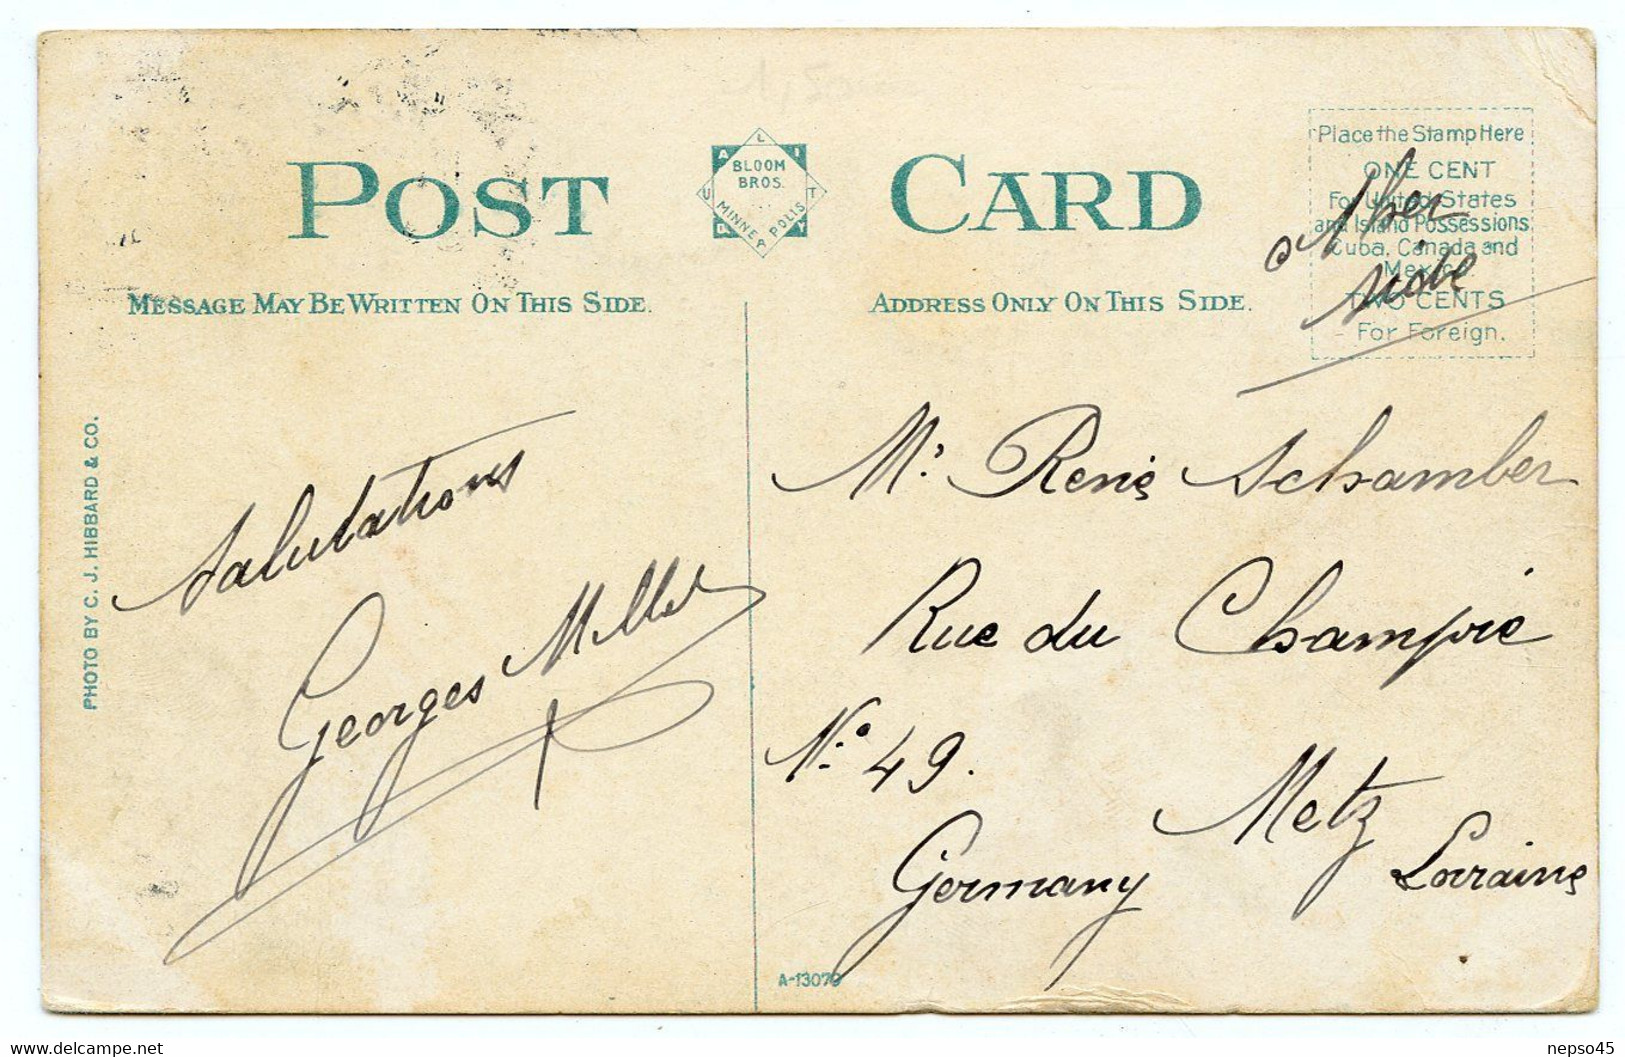 POST CARD
QUALITY
BLOOM
BROS.
MINNEAPOLIS
MESSAGE MAY BE WRITTEN ON THIS SIDE.
ADDRESS ONLY ON THIS SIDE.
Place the Stamp Here
ONE CENT
For United States
and Island Possessions
Cuba, Canada and
Mexico.
TWO CENTS
For Foreign.
PHOTO BY C. J. HIBBARD & CO.
Salutations
Georges
Mr René Schamber
Rue du Champié
No 49.
Metz
Germany Lorraine
A-13079
nepso45